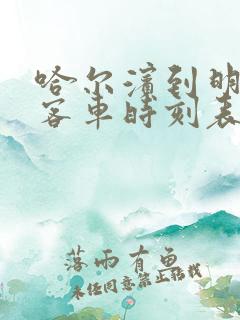 哈尔滨到明
客车时刻表
落雨有鱼
未经同意禁止搬我